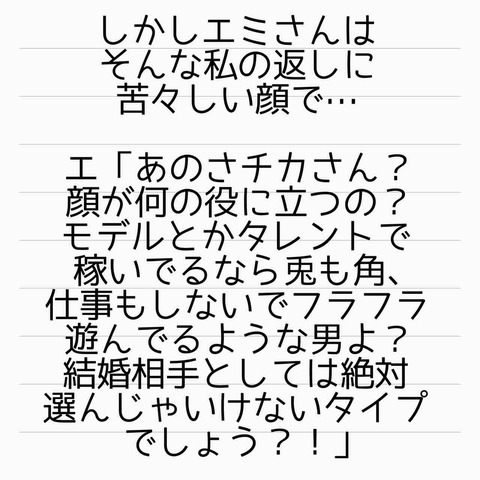 しかしエミさんは
そんな私の返しに
苦々しい顔で…
エ「あのさチカさん？
顔が何の役に立つの？
モデルとかタレントで
稼いでるなら兎も角、
仕事もしないでフラフラ
遊んでるような男よ？
結婚相手としては絶対
選んじゃいけないタイプ
でしょう？！」